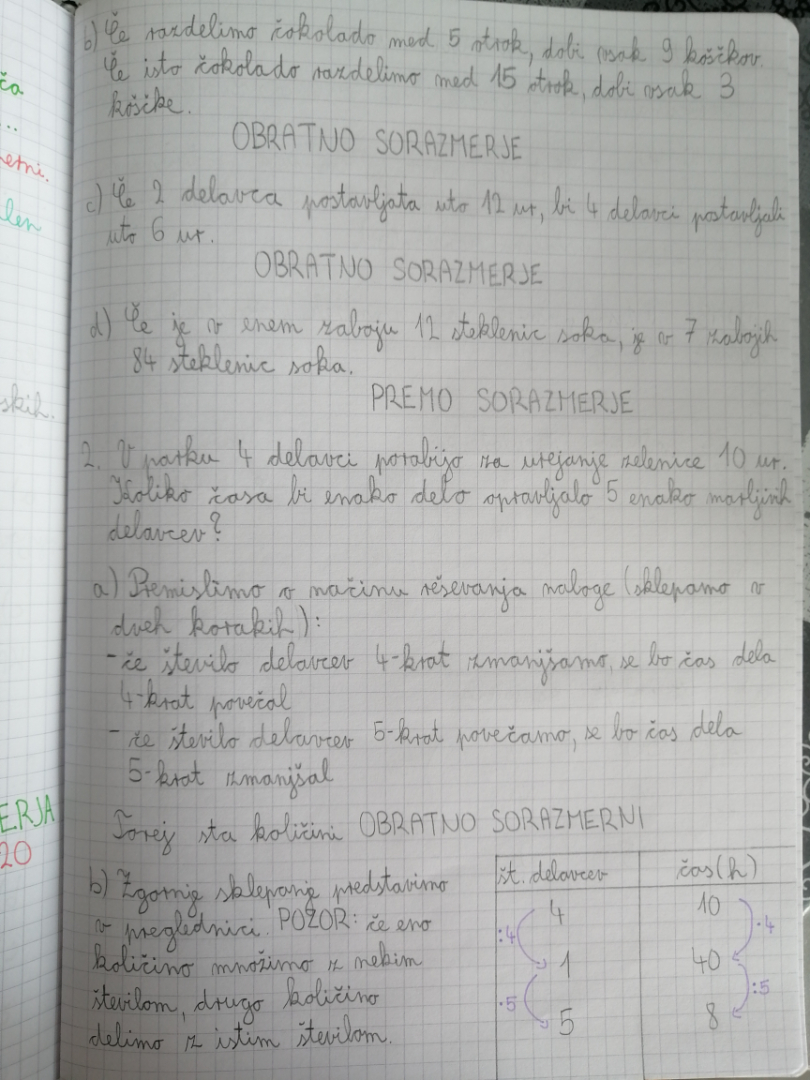 ča
...
etni.
len
skih.
ERJA
20
b) Če razdelimo čokolado med 5 otrok, dobi vsak 9 koščkov.
Če isto čokolado razdelimo med 15 otrok, dobi vsak 3
koščke.
OBRATNO SORAZMERJE
c) Če 2 delavca postavljata uto 12 ur, bi 4 delavci postavljali
uto 6 ur.
OBRATNO SORAZMERJE
d) Če je v enem zaboju 12 steklenic soka, je v 7 zabojih
84 steklenic soka.
PREMO SORAZMERJE
2. V parku 4 delavci porabijo za urejanje zelenice 10 ur.
Koliko časa bi enako delo opravljalo 5 enako marljivih
delavcev?
a) Premislimo o načinu reševanja naloge (sklepamo v
dveh korakih):
- če število delavcev 4-krat zmanjšamo, se bo čas dela
4-krat povečal
- če število delavcev 5-krat povečamo, se bo čas dela
5-krat zmanjšal
Torej sta količini OBRATNO SORAZMERNI
b) Zgornje sklepanje predstavimo
v preglednici. POZOR: če eno
količino množimo z nekim
številom, drugo količino
delimo z istim številom.
št. delavcev čas (h)
4 10
:4 ·4
1 40
·5 :5
5 8